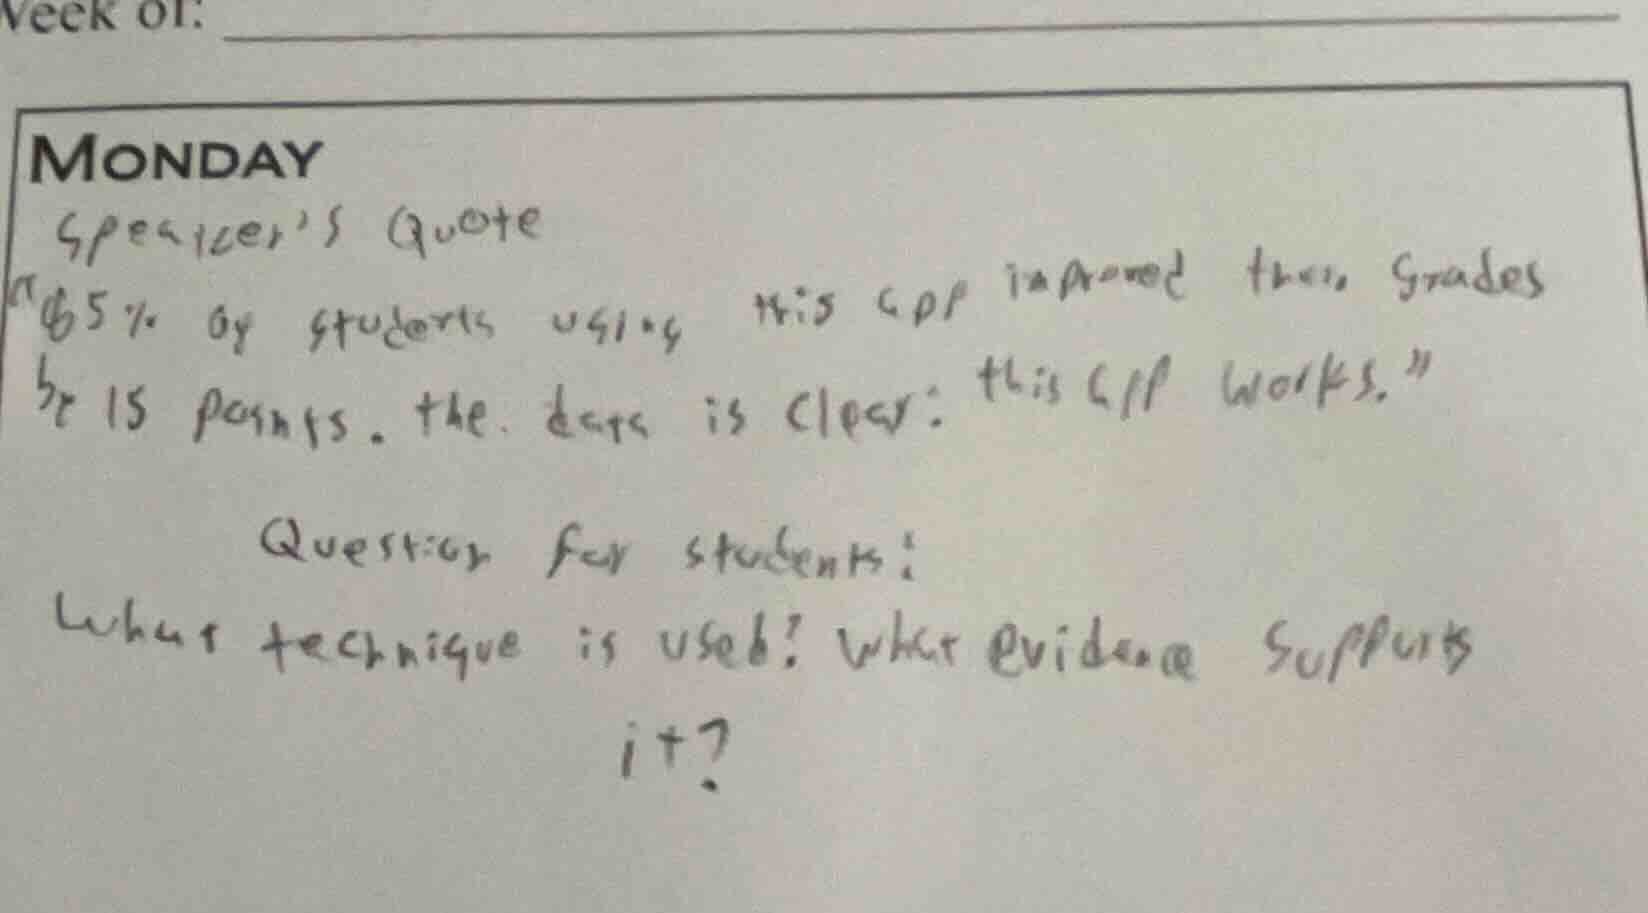 Week of:
MONDAY
Speaker's Quote
"65% of students using this app improved their grades
by 15 points. the data is clear: this app works."
Question for students:
What technique is used? What evidence supports
it?